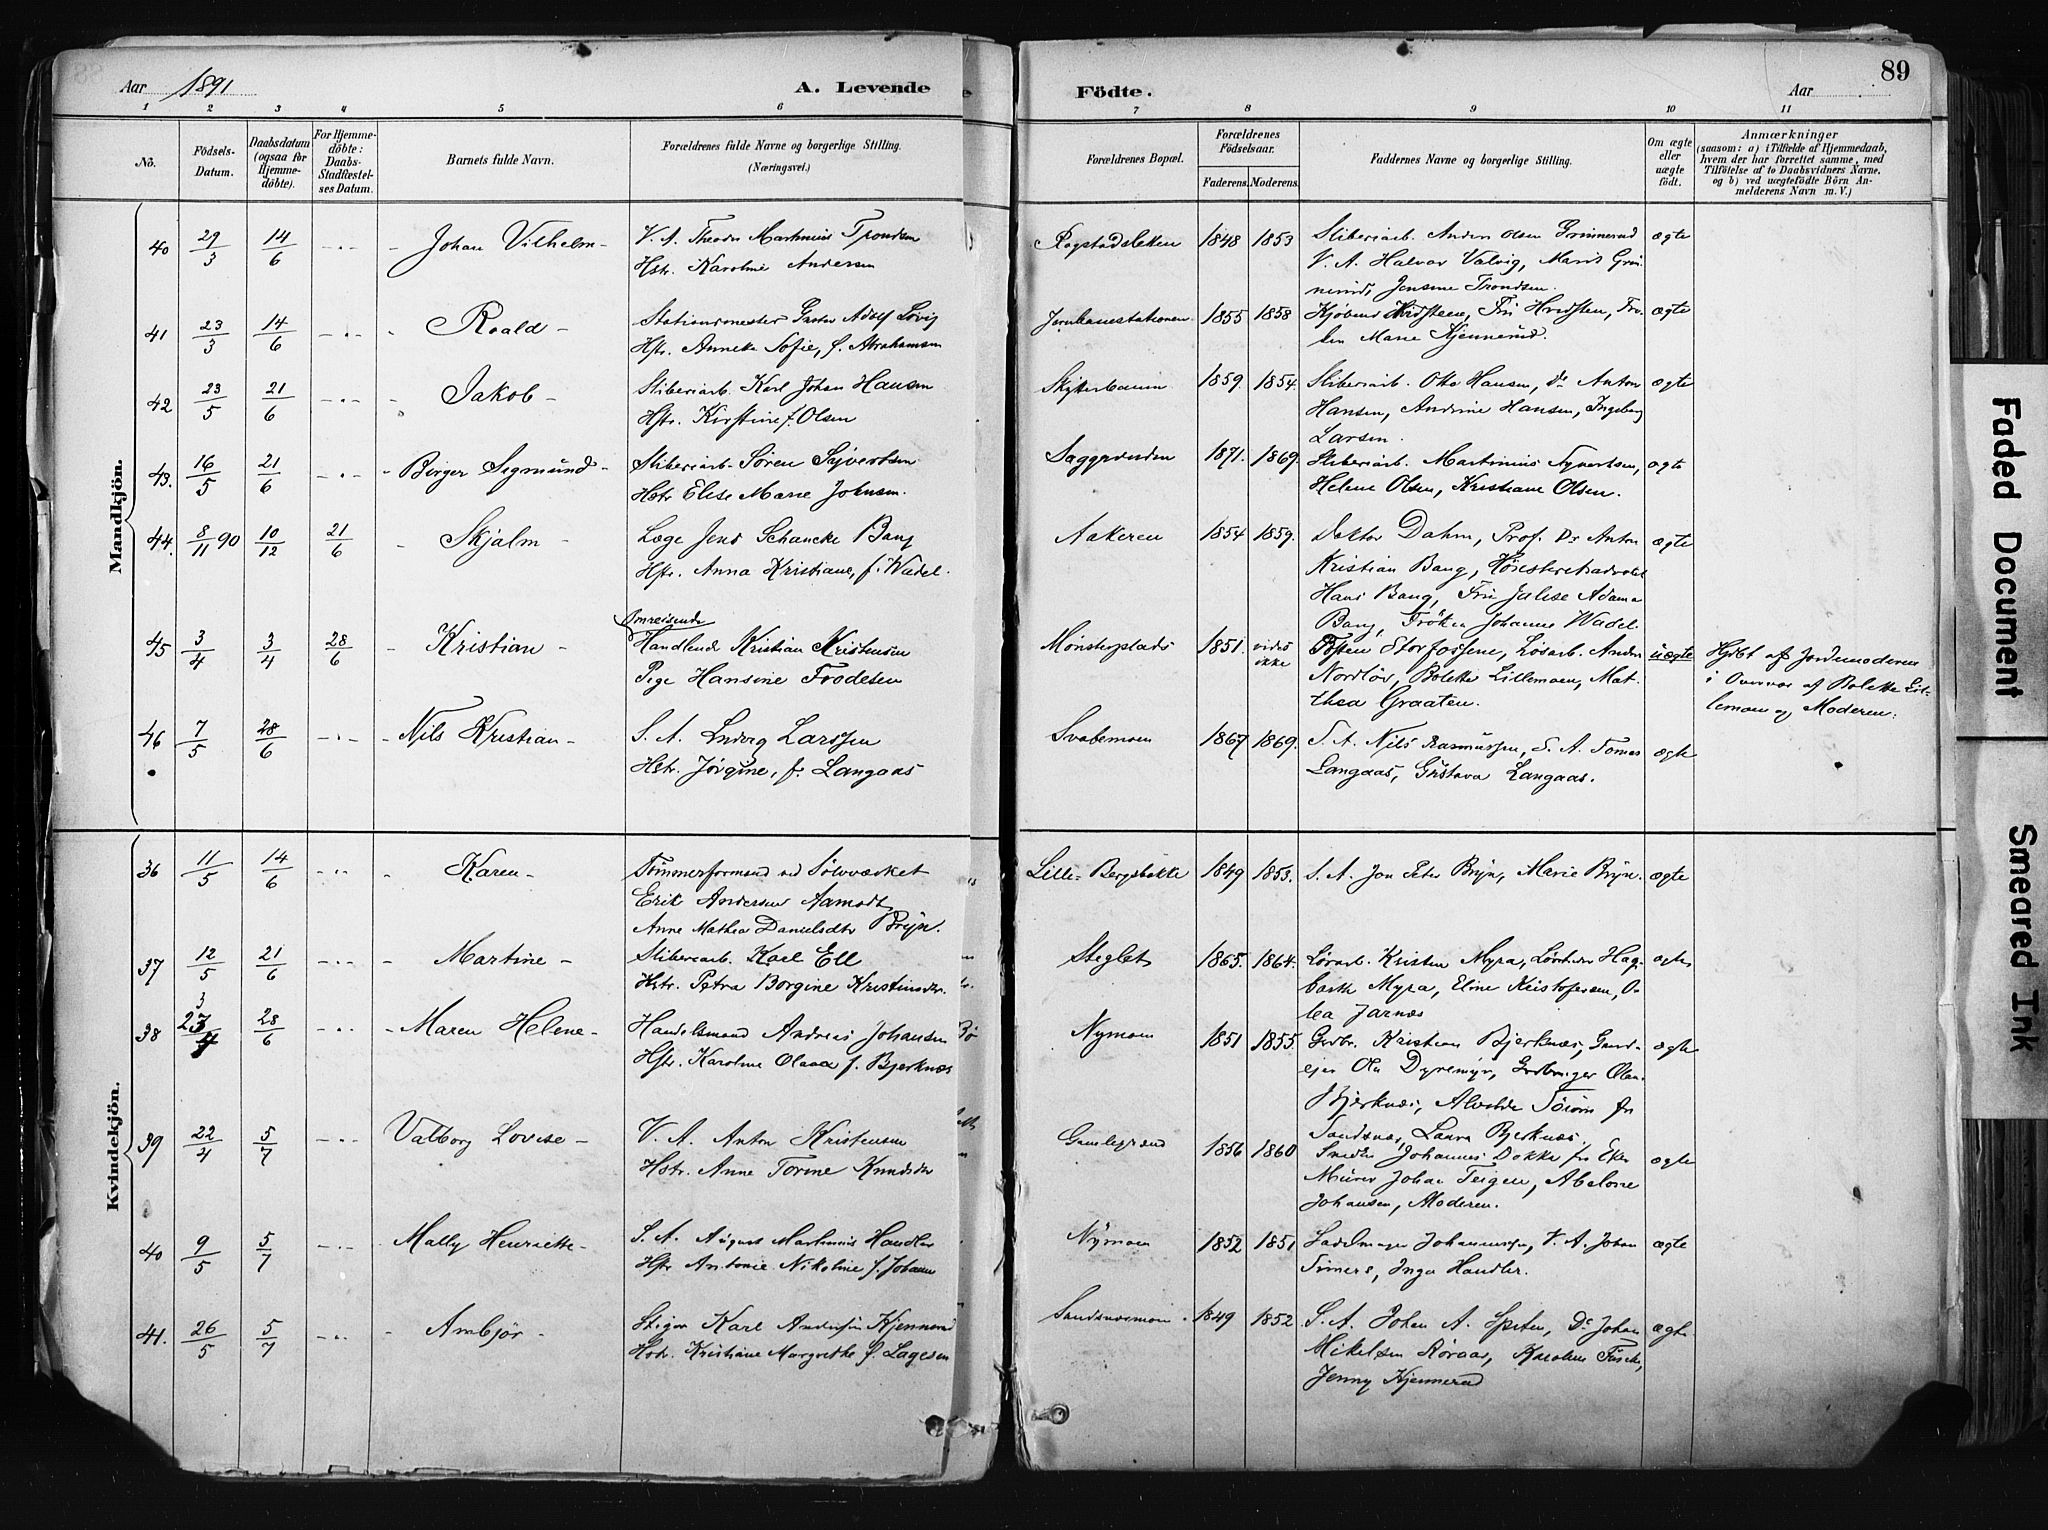 Aar 1891
A. Levende
Födte.
Aar
89
1 2 3 4 5 6 7 8 9 10 11
No.
Födsels-
Datum.
Daabsdatum
(ogsaa for
Hjemme-
döbte).
For Hjemme-
döbte:
Daabs-
Stadfæstel-
ses Datum.
Barnets fulde Navn.
Forældrenes fulde Navne og borgerlige Stilling.
(Næringsvei.)
Forældrenes Bopæl.
Forældrenes
Födselsaar.
Faderens.
Moderens.
Faddernes Navne og borgerlige Stilling.
Om ægte
eller
uægte
födt.
Anmærkninger
(saasom: a) i Tilfælde af Hjemmedaab,
hvem der har forrettet samme, med
Tilföielse af to Daabsvidners Navne,
og b) ved uægtefödte Börn An-
melderens Navn m. V.)
Mandkjön.
40 29/3 14/6 Johan Vilhelm
V. A. Theodor Martinius Trondsen
Hstr. Karoline Andersen
Rogstadsløkken 1848 1853
Sliberiarb. Anders Olsen Grinnerud
V. A. Halvor Valvig, Marit Grin-
neruds Jensine Trondsen.
ægte
41 23/3 14/6 Roald
Stationsmester Gustav Adolf Lövig
Hstr. Anneka Sofie, f. Abrahamsen
Jernbanestationen 1855 1858
Kjøbmd Hvidsteen, Fru Hvidsten, Frø-
ken Marie Kjennerud.
ægte
42 23/5 21/6 Jakob
Sliberiarb. Karl Johan Hansen
Hstr. Kirstine f. Olsen
1859 1854.
Sliberiarb. Otto Hansen, Do Anton
Hansen, Andrine Hansen, Ingeborg
Larsen.
ægte
43. 16/5 21/6 Borger Sigmund
Sliberiarb. Søren Syvertsen
Hstr Elise Marie Johnsen.
Saggrenden 1871. 1869.
Sliberiarb. Martinius Syvertsen,
Helene Olsen, Kristiane Olsen.
ægte
44. 8/11 90 10/12 21/6 Skjalm
Læge Jens Schancke Bang
Hstr. Anna Kristiane, f. Wedel.
Aakeren 1854 1859.
Doktor Dahm, Prof. Dr Anton
Kristian Bang, Høiesteretsadvokat
Hans Bang, Fru Julise Adama
Bang, Frøken Johanne Wedel.
ægte
45 3/4 3/4 28/6 Kristian
Omreisende
Handlende Kristian Kristensen
Pige Hansine Frodesen
Mönstergstads 1851. vides
ikke
Torsten Storfossene, Løsarb. Anders
Nordløv, Bolette Lillemoen, Mat-
thea Graaten.
uægte
Hjdøbt af Jordemoderen
i Overvær af Bolette Lil-
lemoen og Moderen.
46 7/5 28/6 Nils Kristian
S. A. Ludvig Larssen
Hstr. Jørgine, f. Langaas
Svabemoen 1867 1869.
S. A. Nils Rasmussen, S. A. Tomas
Langaas, Gustava Langaas.
ægte
Kvindekjön.
36 11/5 14/6 Karen
Tømmerformand ved Sølvværket
Erik Andersen Aamodt
Anne Mathea Danielsdtr Bryn.
Lille-Bergsbakke 1849 1853.
S. A. Jon Peter Bryn, Marie Bryn.
ægte
37 12/5 21/6 Martine
Sliberiarb. Karl Ell
Hstr. Petra Borgine Kristinsdtr.
Steglet 1865. 1864.
Løsarb. Kristen Myra, Hag-
barth Myra, Eline Kristofersen, O-
lea Jarnæs
ægte
38 23/4 28/6 Maren Helene
Handelsmand Andreas Johansen
Hstr. Karoline Olava f. Bjerknæs
Nymoen 1851 1855.
Grdbr. Kristian Bjerknæs, Gaard-
ejer Ole Dyremyr, Grdbruger Olaus
Bjerknæs, Alvilde fr
Sandsnæs, Laura Bjerknæs.
ægte
39 22/4 5/7 Valborg Lovise
V. A. Anton Kristensen
Hstr. Anne Torine Knudsdtr
Gamlegrænd 1856 1860
Smeden Johannes Dokka fra Eker
Murer Johan Teigen, Abelone
Johansen, Moderen.
ægte
40 9/5 5/7 Mally Henriette
S. A. August Martinius Handler
Hstr Antonie Nikoline f. Johansen
Nymoen 1852 1851
Sadelmager Johannessen, V. A. Johan
Timers, Inga Handler.
ægte
41. 26/5 5/7 Ambjør
Stiger Karl Andersen Kjennerud
Hstr. Kristiane Margrethe f. Lagesen
Sandsværmoen 1849 1852
S. A. Johan A. Spiten, Do Johan
Mikelsen Røraas, Karoline Fisch,
Jenny Kjennerud
ægte
Faded Document
Smeared Ink